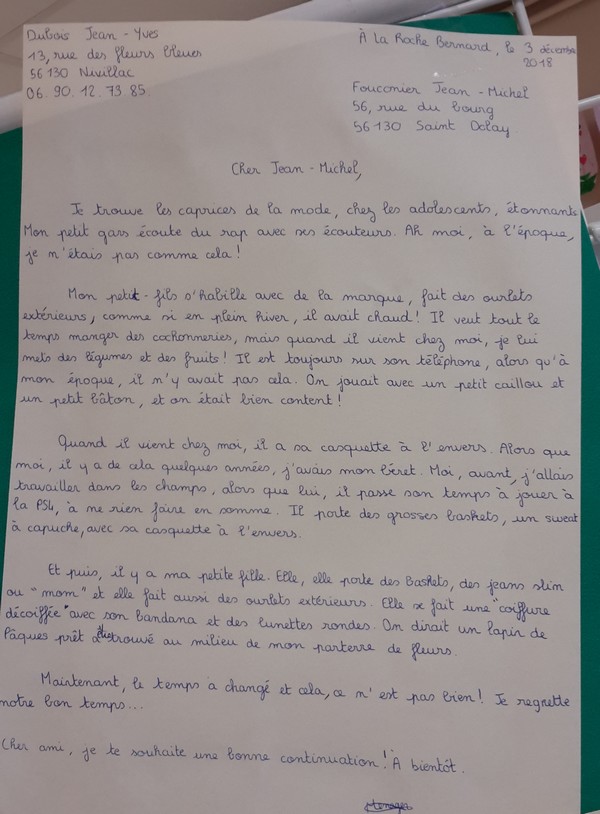 Dubois Jean-Yves
13, rue des fleurs bleues
56130 Nivillac
06.90.12.73.85.
À La Roche Bernard, le 3 décembre
2018
Fouconier Jean-Michel
56, rue du bourg
56130 Saint Dolay
Cher Jean-Michel,
Je trouve les caprices de la mode, chez les adolescents, étonnants.
Mon petit gars écoute du rap avec ses écouteurs. Ah moi, à l'époque,
je n'étais pas comme cela !
Mon petit-fils s'habille avec de la marque, fait des ourlets
extérieurs, comme si en plein hiver, il avait chaud ! Il veut tout le
temps manger des cochonneries, mais quand il vient chez moi, je lui
mets des légumes et des fruits ! Il est toujours sur son téléphone, alors qu'à
mon époque, il n'y avait pas cela. On jouait avec un petit caillou et
un petit bâton, et on était bien content !
Quand il vient chez moi, il a sa casquette à l'envers. Alors que
moi, il y a de cela quelques années, j'avais mon béret. Moi, avant, j'allais
travailler dans les champs, alors que lui, il passe son temps à jouer à
la PS4, à ne rien faire en somme. Il porte des grosses baskets, un sweat
à capuche, avec sa casquette à l'envers.
Et puis, il y a ma petite fille. Elle, elle porte des baskets, des jeans slim
ou "mom" et elle fait aussi des ourlets extérieurs. Elle se fait une "coiffure
décoiffée" avec son bandana et des lunettes rondes. On dirait un lapin de
Pâques prêt à être trouvé au milieu de mon parterre de fleurs.
Maintenant, le temps a changé et cela, ce n'est pas bien ! Je regrette
notre bon temps...
Cher ami, je te souhaite une bonne continuation ! À bientôt.